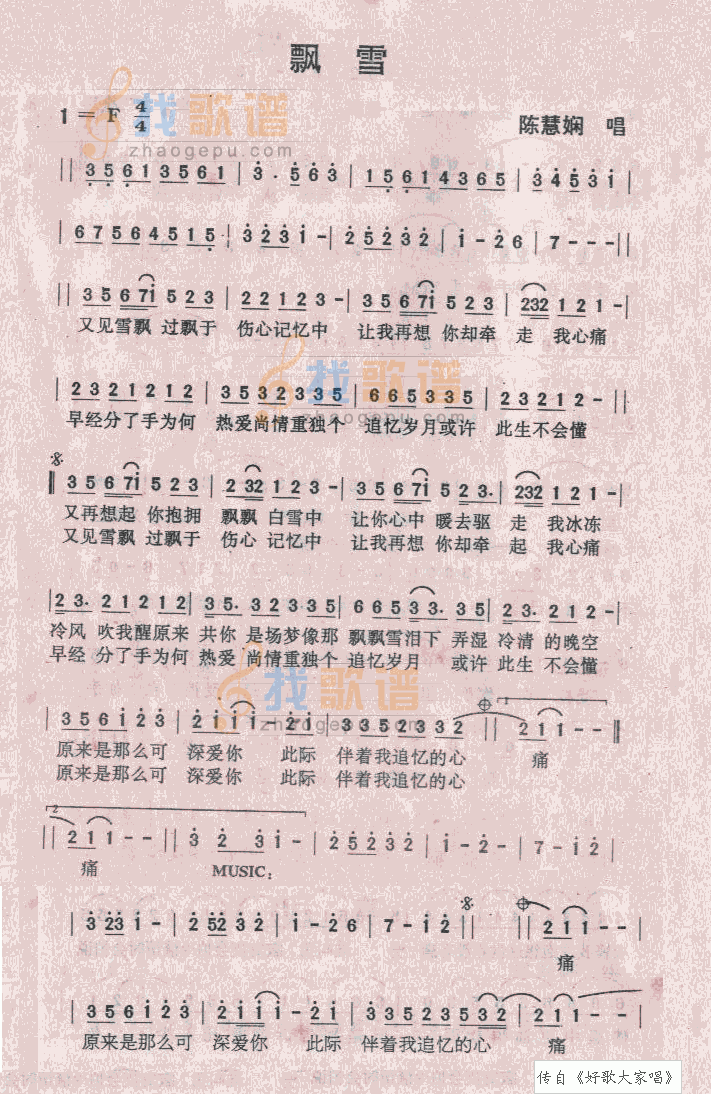 飘 雪
1 = F 4/4
陈慧娴 唱
找歌谱
zhaogepu.com
|| 3 5 6 1 3 5 6 1 | 3 · 5 6 3 | 1 5 6 1 4 3 6 5 | 3 4 5 3 1 |
| 6 7 5 6 4 5 1 5 | 3 2 3 1 - | 2 5 2 3 2 | 1 - 2 6 | 7 - - - ||
|| 3 5 6 7 1 5 2 3 | 2 2 1 2 3 - | 3 5 6 7 1 5 2 2 3 | 2 3 2 1 2 1 - |
又见雪飘 过飘于 伤心记忆中 让我再想 你却牵 走 我心痛
| 2 3 2 1 2 1 2 | 3 5 3 2 3 3 5 | 6 6 5 3 3 5 | 2 3 2 1 2 - ||
找歌谱
zhaogepu.com
早经分了手为何 热爱尚情重独个 追忆岁月或许 此生不会懂
|| 3 5 6 7 1 5 2 3 | 2 3 2 1 2 3 - | 3 5 6 7 1 5 2 3 · | 2 3 2 1 2 1 - |
又再想起 你抱拥 飘飘 白雪中 让你心中 暖去驱 走 我冰冻
又见雪飘 过飘于 伤心 记忆中 让我再想 你却牵 起 我心痛
| 2 3 · 2 1 2 1 2 | 3 5 · 3 2 3 3 5 | 6 6 5 3 3 · 3 5 | 2 3 · 2 1 2 - |
冷风 吹我醒原来 共你 是场梦像那 飘飘雪泪下 弄湿 冷清 的晚空
早经 分了手为何 热爱 尚情重独个 追忆岁月 或许 此生 不会懂
找歌谱
zhaogepu.com
| 3 5 6 1 2 3 | 2 1 1 1 - 2 1 | 3 3 5 2 3 3 2 || 2 1 1 - - ||
原来是那么可 深爱你 此际 伴着我追忆的心 痛
原来是那么可 深爱你 此际 伴着我追忆的心
2
|| 2 1 1 - - || 3 2 3 1 - | 2 5 2 3 2 | 1 - 2 - | 7 - 1 2 |
痛 MUSIC:
| 3 2 3 1 - | 2 5 2 3 2 | 1 - 2 6 | 7 - 1 2 || || 2 1 1 - - |
痛
| 3 5 6 1 2 3 | 2 1 1 1 - 2 1 | 3 3 5 2 3 5 3 2 | 2 1 1 - - |
原来是那么可 深爱你 此际 伴着我追忆的心 痛
传自《好歌大家唱》